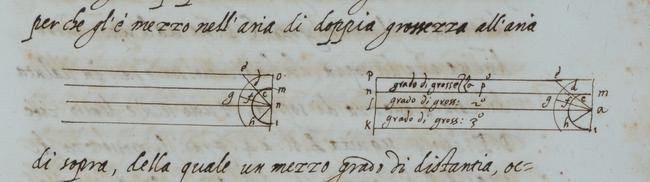 per che gl'è mezzo nell'aria di doppia grossezza all'aria
e d o m g f e n h i
p grado di grossezza p° e d m
n g f e
l grado di gross: 2° a
k grado di gross: 3° h i
di sopra, della quale un mezzo grado di distantia, oc=